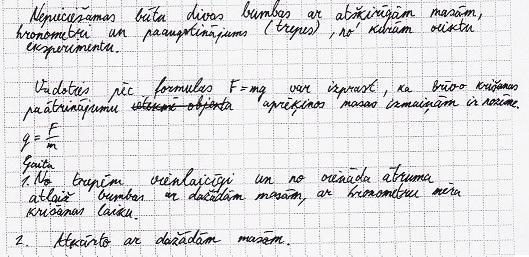 Nepieciešamas būtu divas bumbas ar atšķirīgām masām,
hronometru un paaugstinājums (trepes), no kurām veiktu
eksperimentu.
Vadoties pēc formulas F=mg var izprast, ka brīvo krišanas
paātrinājumu ietekmē objekta aprēķinos masas izmaiņām ir nozīme.
g = F/m
Gaita
1. No trepēm vienlaicīgi un no vienāda ātruma
atlaiž bumbas ar dažādām masām, ar hronometru mēra
krišanas laiku.
2. Atkārto ar dažādām masām.